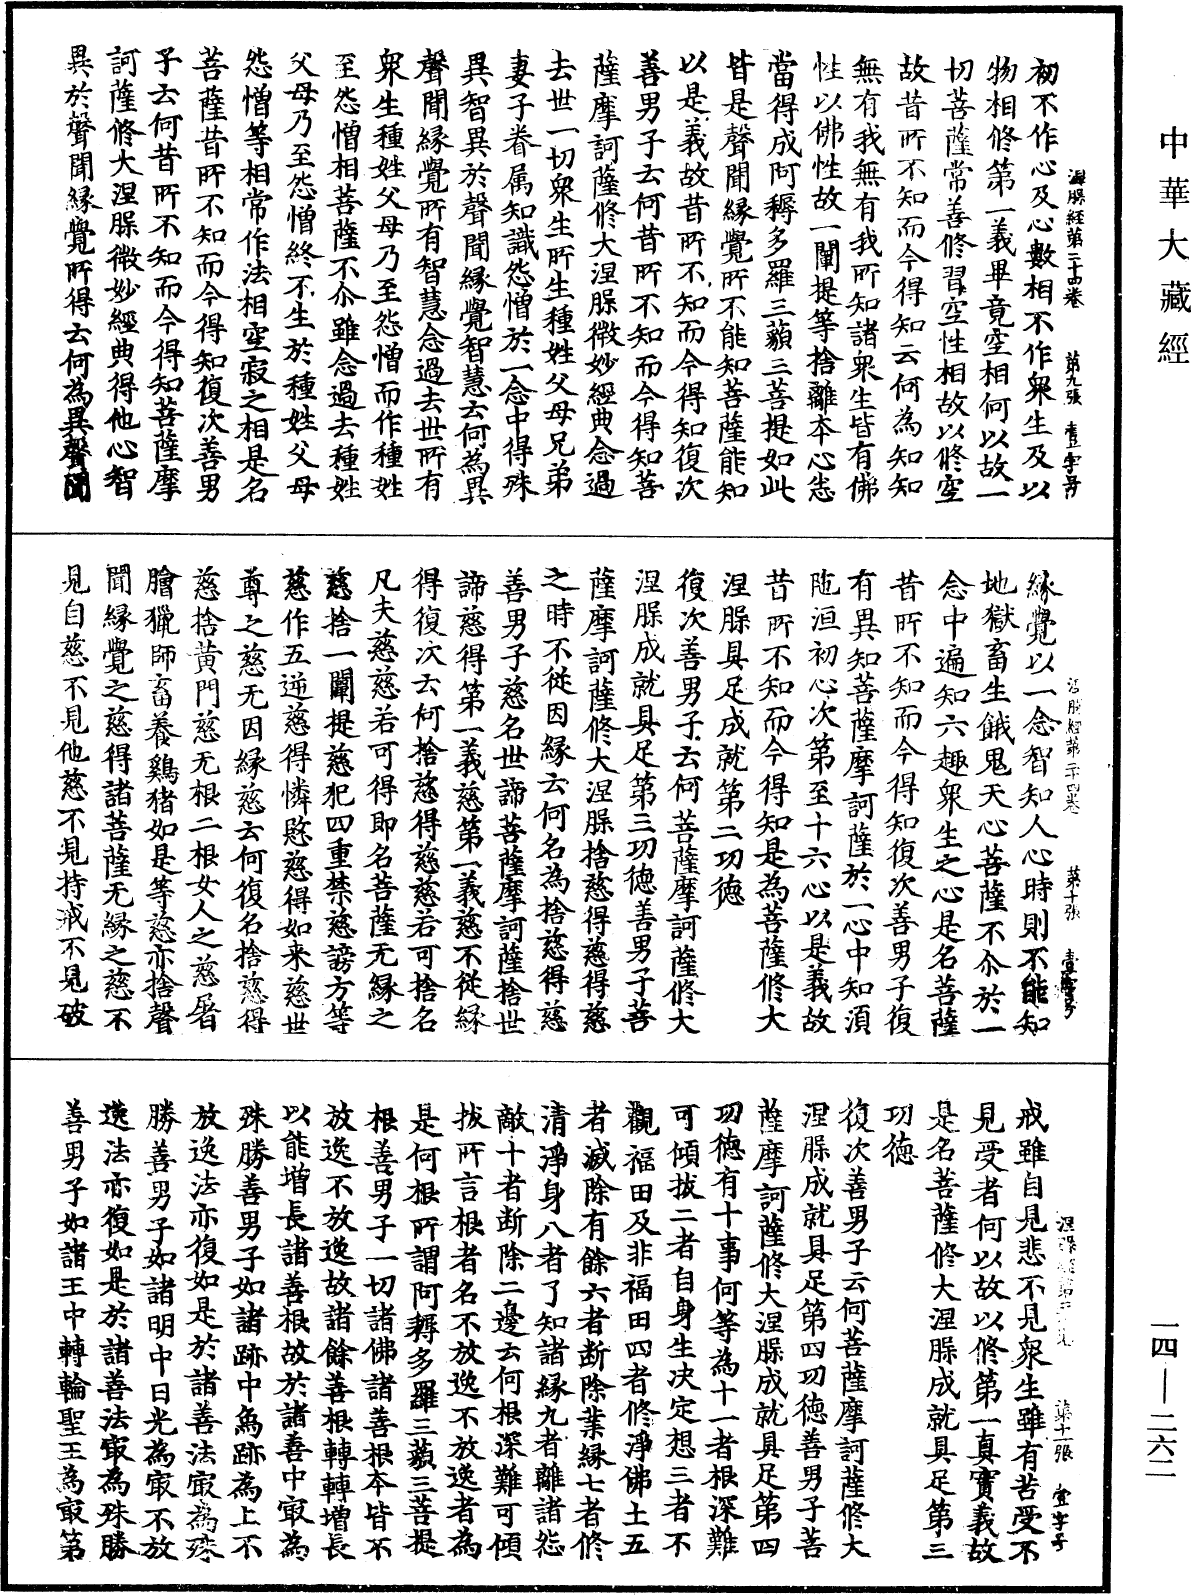 中華大藏經
一四—二六二
涅槃經第二十四卷 第九張 壹字号
初不作心及心數相不作衆生及以
物相修第一義畢竟空相何以故一
切菩薩常善修習空性相故以修空
故昔所不知而今得知云何為知知
無有我無有我所知諸衆生皆有佛
性以佛性故一闡提等捨離本心悉
當得成阿耨多羅三藐三菩提如此
皆是聲聞緣覺所不能知菩薩能知
以是義故昔所不知而今得知復次
善男子云何昔所不知而今得知菩
薩摩訶薩修大涅槃微妙經典念過
去世一切衆生所生種姓父母兄弟
妻子眷屬知識怨憎於一念中得殊
異智異於聲聞緣覺智慧云何為異
聲聞緣覺所有智慧念過去世所有
衆生種姓父母乃至怨憎而作種姓
至怨憎相菩薩不尒雖念過去種姓
父母乃至怨憎終不生於種姓父母
怨憎等相常作法相空寂之相是名
菩薩昔所不知而今得知復次善男
子云何昔所不知而今得知菩薩摩
訶薩修大涅槃微妙經典得他心智
異於聲聞緣覺所得云何為異聲聞
涅槃經第二十四卷 第十張 壹字号
緣覺以一念智知人心時則不能知
地獄畜生餓鬼天心菩薩不尒於一
念中遍知六趣衆生之心是名菩薩
昔所不知而今得知復次善男子復
有異知菩薩摩訶薩於一心中知須
陁洹初心次第至十六心以是義故
昔所不知而今得知是為菩薩修大
涅槃具足成就第二功德
復次善男子云何菩薩摩訶薩修大
涅槃成就具足第三功德善男子菩
薩摩訶薩修大涅槃捨慈得慈得慈
之時不從因緣云何名為捨慈得慈
善男子慈名世諦菩薩摩訶薩捨世
諦慈得第一義慈第一義慈不從緣
得復次云何捨慈得慈慈若可捨名
凡夫慈慈若可得即名菩薩无緣之
慈捨一闡提慈犯四重禁慈謗方等
慈作五逆慈得憐愍慈得如来慈世
尊之慈无因緣慈云何復名捨慈得
慈捨黄門慈无根二根女人之慈屠
膾獵師畜養鷄猪如是等慈亦捨聲
聞緣覺之慈得諸菩薩无緣之慈不
見自慈不見他慈不見持戒不見破
第十一張 壹字号
戒雖自見悲不見衆生雖有苦受不
見受者何以故以修第一真實義故
是名菩薩修大涅槃成就具足第三
功德
復次善男子云何菩薩摩訶薩修大
涅槃成就具足第四功德善男子菩
薩摩訶薩修大涅槃成就具足第四
功德有十事何等為十一者根深難
可傾拔二者自身生决定想三者不
觀福田及非福田四者修淨佛土五
者滅除有餘六者断除業緣七者修
清淨身八者了知諸緣九者離諸怨
敵十者断除二邊云何根深難可傾
拔所言根者名不放逸不放逸者為
是何根所謂阿耨多羅三藐三菩提
根善男子一切諸佛諸善根本皆不
放逸不放逸故諸餘善根轉轉增長
以能增長諸善根故於諸善中㝡為
殊勝善男子如諸跡中為跡為上不
放逸法亦復如是於諸善法㝡為殊
勝善男子如諸明中日光為㝡不放
逸法亦復如是於諸善法㝡為殊勝
善男子如諸王中轉輪聖王為㝡第